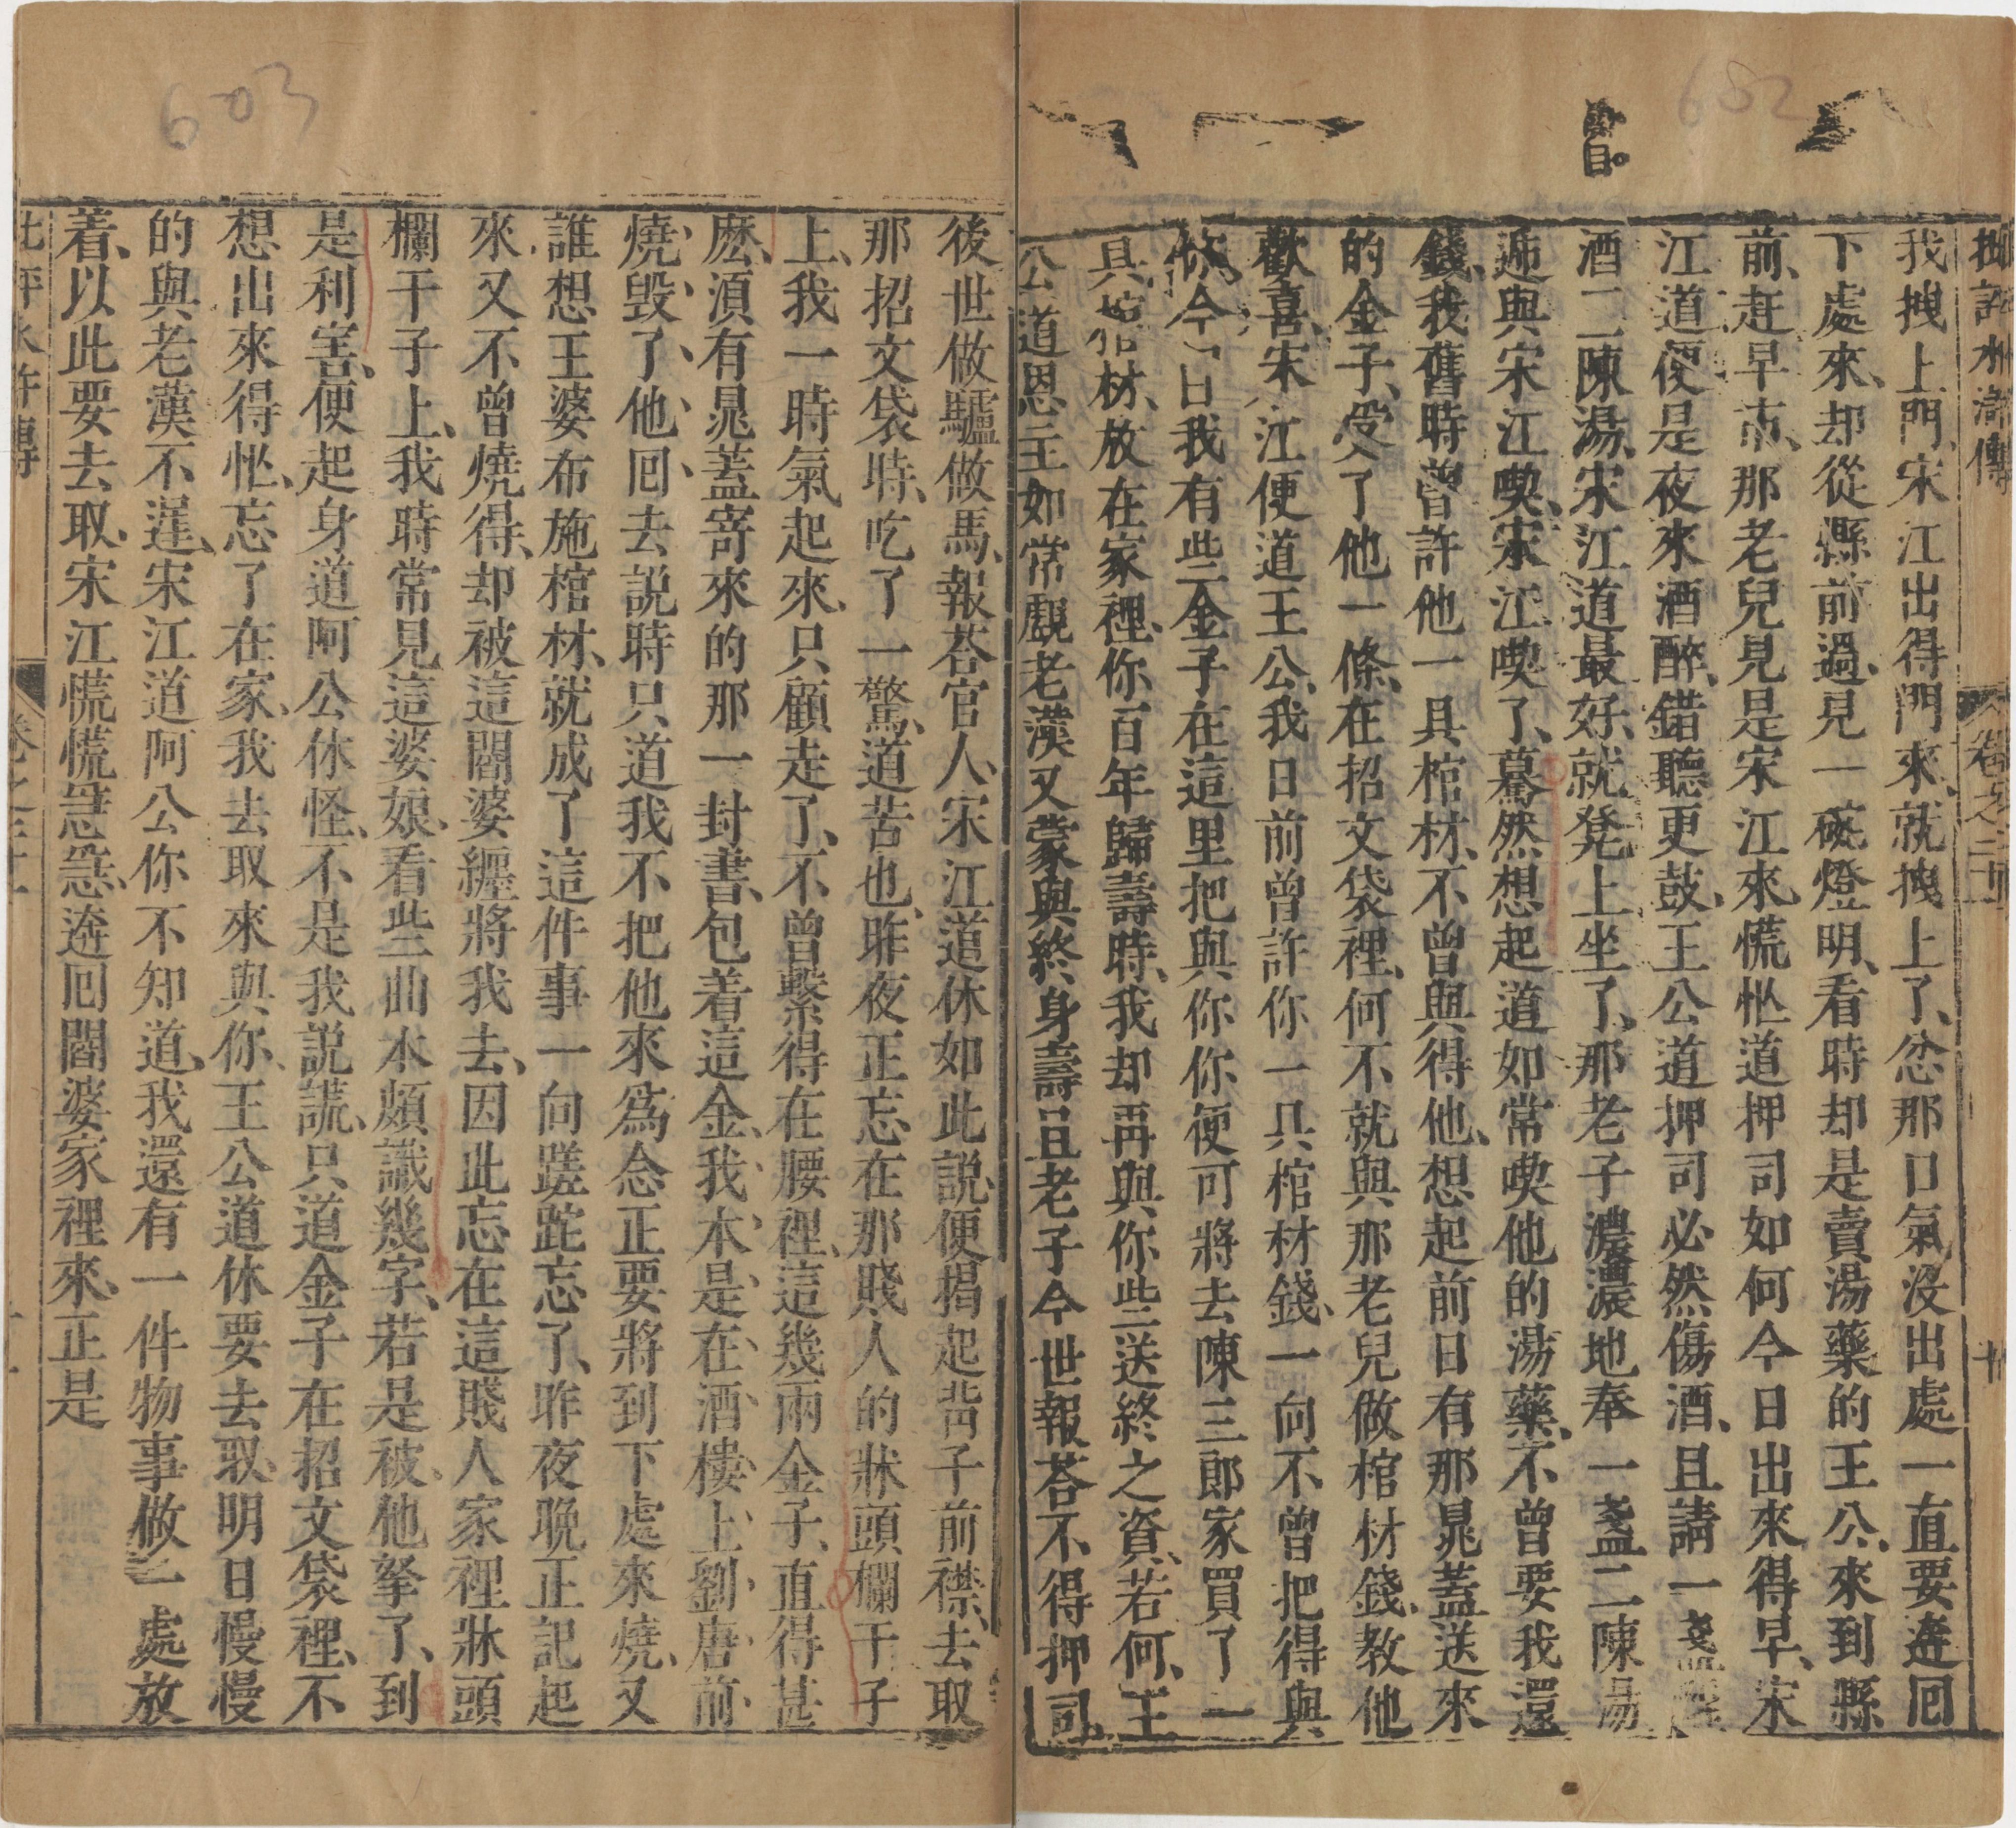 652
目
批評水滸傳
卷之二十
十
我拽上門宋江出得門來就拽上了忿那口氣没出處一直要逩囘
下處來却從縣前過見一碗燈明看時却是賣湯藥的王公來到縣
前赶早市那老兒見是宋江來慌忙道押司如何今日出來得早宋
江道便是夜來酒醉錯聽更鼓王公道押司必然傷酒且請一盞
酒二陳湯宋江道最好就凳上坐了那老子濃濃地奉一盞二陳湯
遞與宋江喫宋江喫了驀然想起道如常喫他的湯藥不曾要我還
錢我舊時曾許他一具棺材不曾與得他想起前日有那晁蓋送來
的金子受了他一條在招文袋裡何不就與那老兒做棺材錢教他
歡喜宋江便道王公我日前曾許你一具棺材錢一向不曾把得與
你今日我有些金子在這里把與你你便可將去陳三郎家買了一
具棺材放在家裡你百年歸壽時我却再與你些送終之資若何王
公道恩主如常覷老漢又蒙與終身壽具老子今世報荅不得押司
603
後世做驢做馬報荅官人宋江道休如此說便揭起背子前襟去取
那招文袋時吃了一驚道苦也昨夜正忘在那賤人的牀頭欄干子
上我一時氣起來只顧走了不曾繫得在腰裡這幾兩金子直得甚
麽須有晁蓋寄來的那一封書包着這金我本是在酒樓上劉唐前
燒毁了他囘去説時只道我不把他來爲念正要將到下處來燒又
誰想王婆布施棺材就成了這件事一向蹉跎忘了昨夜晩正記起
來又不曾燒得却被這閻婆纏將我去因此忘在這賤人家裡牀頭
欄干子上我時常見這婆娘看些曲本頗識幾字若是被他拏了到
是利害便起身道阿公休怪不是我説謊只道金子在招文袋裡不
想出來得忙忘了在家我去取來與你王公道休要去取明日慢慢
的與老漢不遲宋江道阿公你不知道我還有一件物事做一處放
着以此要去取宋江慌慌急急逩囘閻婆家裡來正是
批評水滸傳
卷之二十